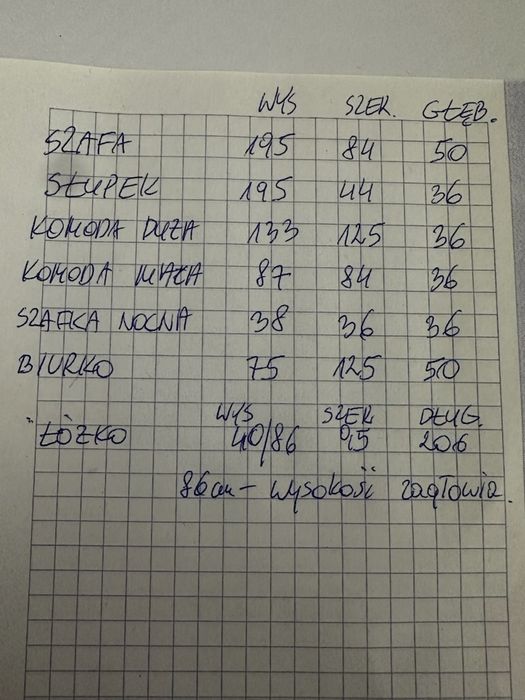 WYS SZER. GŁĘB.
SZAFA 195 84 50
SŁUPEK 195 44 36
KOMODA DUŻA 133 125 36
KOMODA MAŁA 87 84 36
SZAFKA NOCNA 38 36 36
BIURKO 75 125 50
WYS SZER DŁUG.
ŁÓŻKO 40/86 95 206
86cm – wysokość zagłowia.